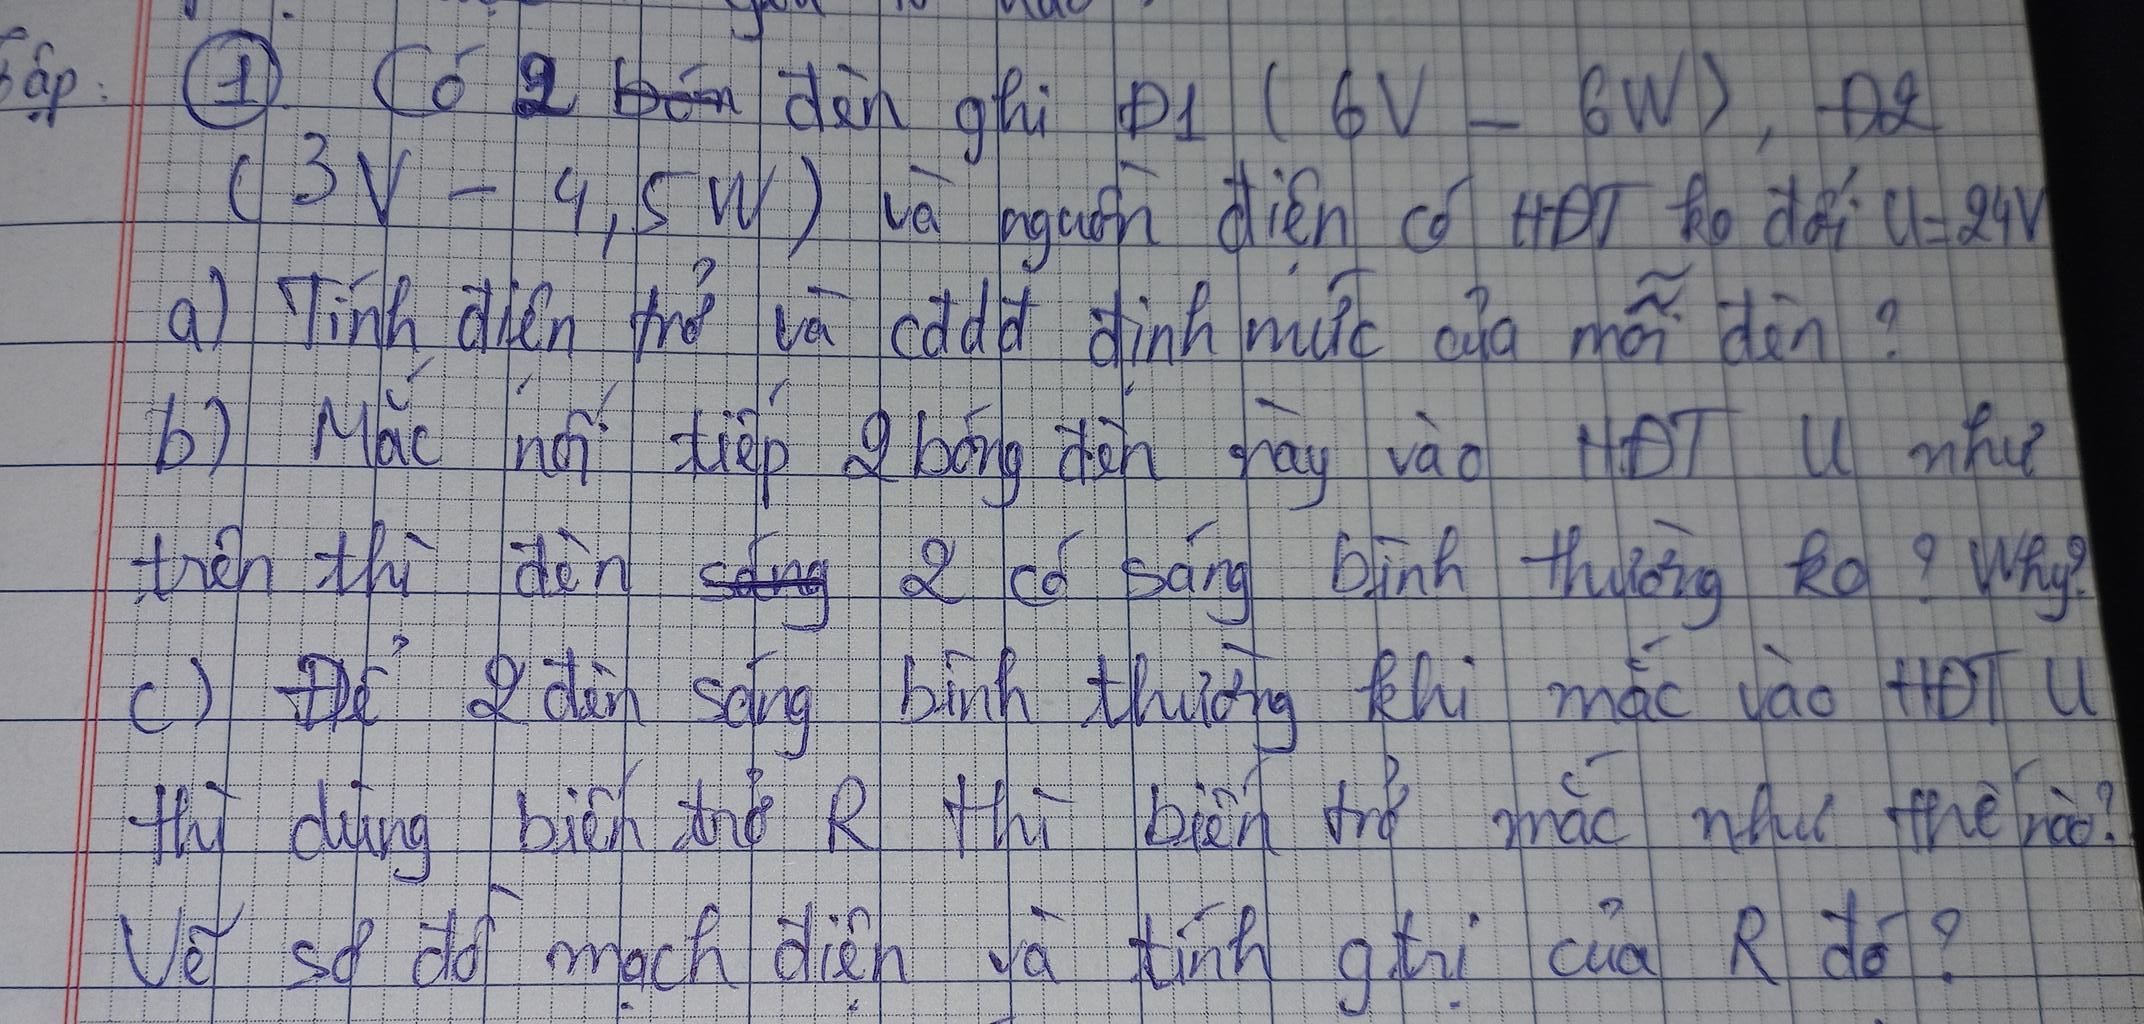 ①. Có 2 đèn ghi Đ1 (6V - 6W), Đ2
(3V - 4,5W) và nguồn điện có HĐT ko đổi U=24V
a) Tính điện trở và cđdđ định mức của mỗi đèn?
b) Mắc nối tiếp 2 bóng đèn này vào HĐT U như
trên thì đèn 2 có sáng bình thường ko? Why?
c) Để 2 đèn sáng bình thường khi mắc vào HĐT U
thì dùng biến trở R thì biến trở mắc như thế nào?
Vẽ sơ đồ mạch điện và tính gtrị của R đó?